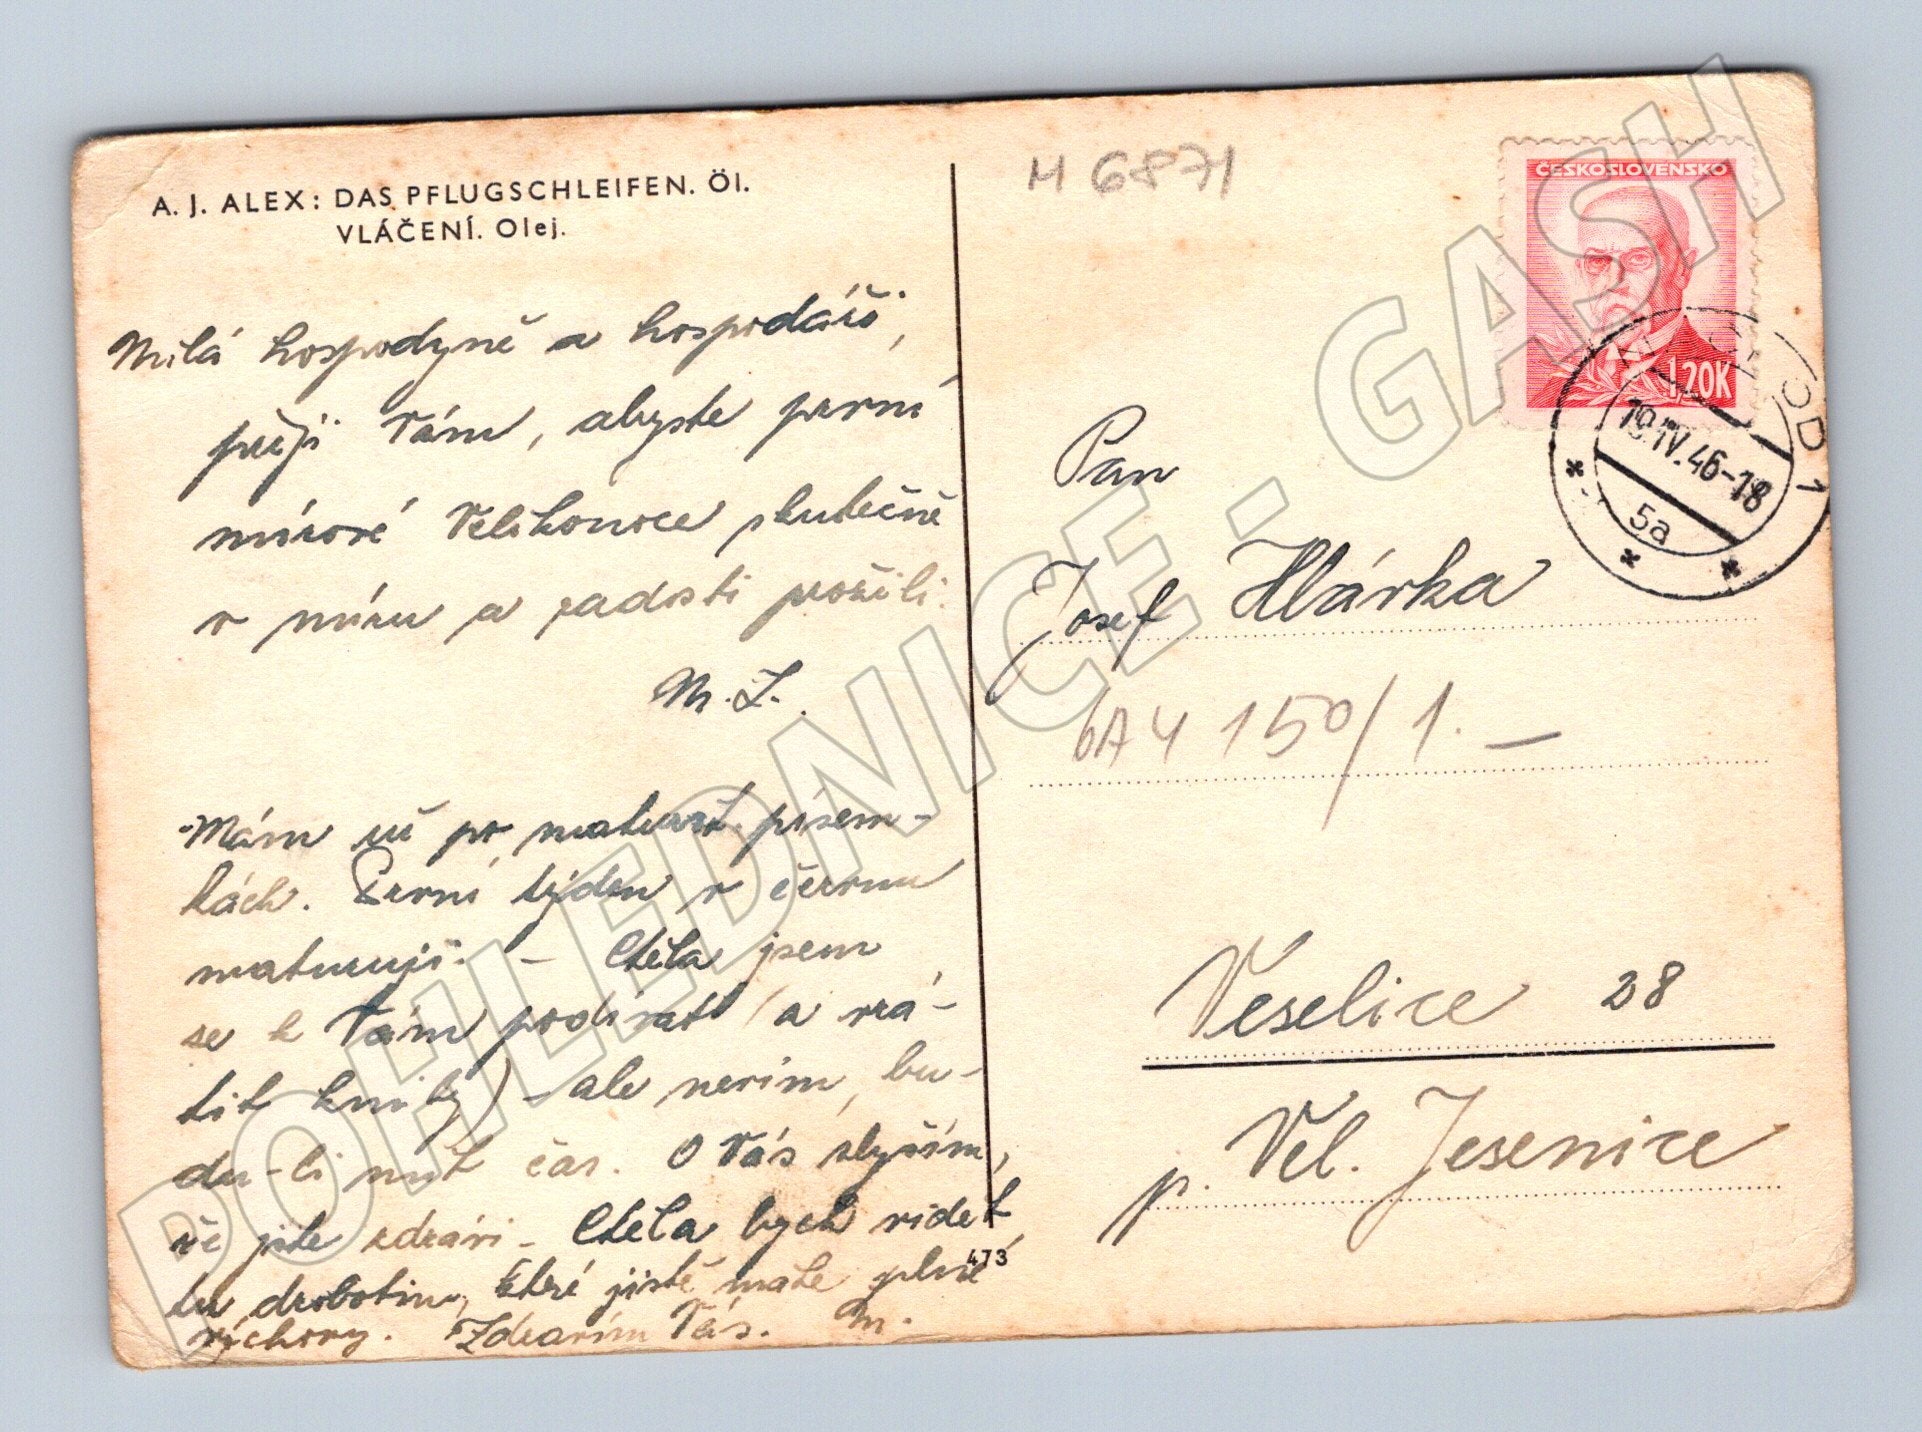 A. J. ALEX: DAS PFLUGSCHLEIFEN. Öl.
VLÁČENÍ. Olej.
Milá hospodyně a hospodáři,
přeji Vám, abyste první
mírové Velikonoce skutečně
v míru a radosti prožili.
M. L.
Mám už po maturit. písem-
kách. První týden v červnu
maturuji. - Chtěla jsem
se k Vám podívat (a vrá-
tit knihy) - ale nevím, bu-
du-li mít čas. O Vás slyším,
že jste zdrávi - Chtěla bych vidět
tu drobotinu, které jistě máte plné
výchovy. Zdravím Vás. M.
473
M 6871
ČESKOSLOVENSKO
1,20K
OD 1
19.IV.46-18
5a
Pan
Josef Hlávka
6A4 150/1.-
Veselice 28
p. Vel. Jesenice
POHLEDNICE - GASH